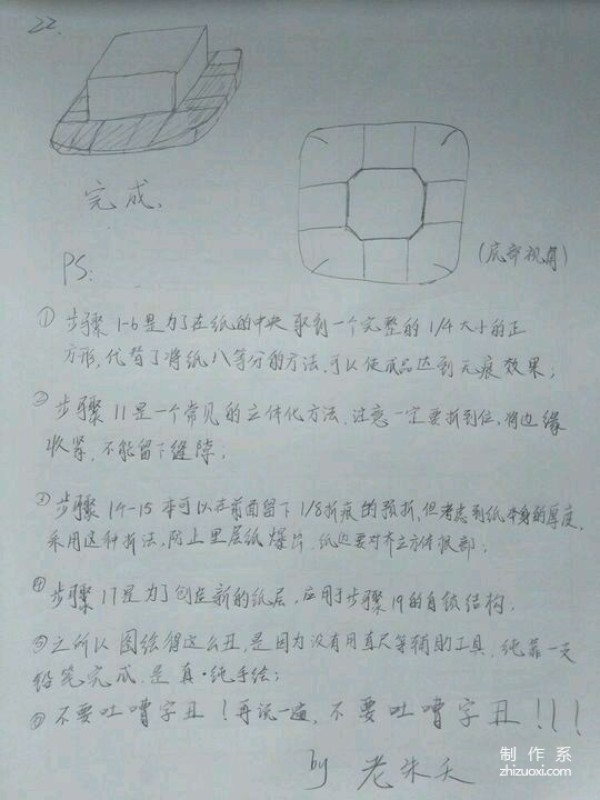 22.
完成.
(底部视角)
PS:
① 步骤1-6是为了在纸的中央取到一个完整的1/4大小的正
方形,代替了将纸八等分的方法,可以使成品达到无痕效果;
② 步骤11是一个常见的立体化方法,注意一定要折到位,将边缘
收紧,不能留下缝隙;
③ 步骤14-15本可以在前面留下1/8折痕的预折,但考虑到纸本身的厚度,
采用这种折法,防止里层纸爆出,纸边要对齐立方体根部;
④ 步骤17是为了创造新的纸层,应用于步骤19的自锁结构.
⑤ 之所以图绘得这么丑,是因为没有用直尺等辅助工具,纯靠一支
铅笔完成,是真·纯手绘;
⑥ 不要吐嘈字丑!再说一遍,不要吐嘈字丑!!!
by 老朱天
制作系
zhizuoxi.com